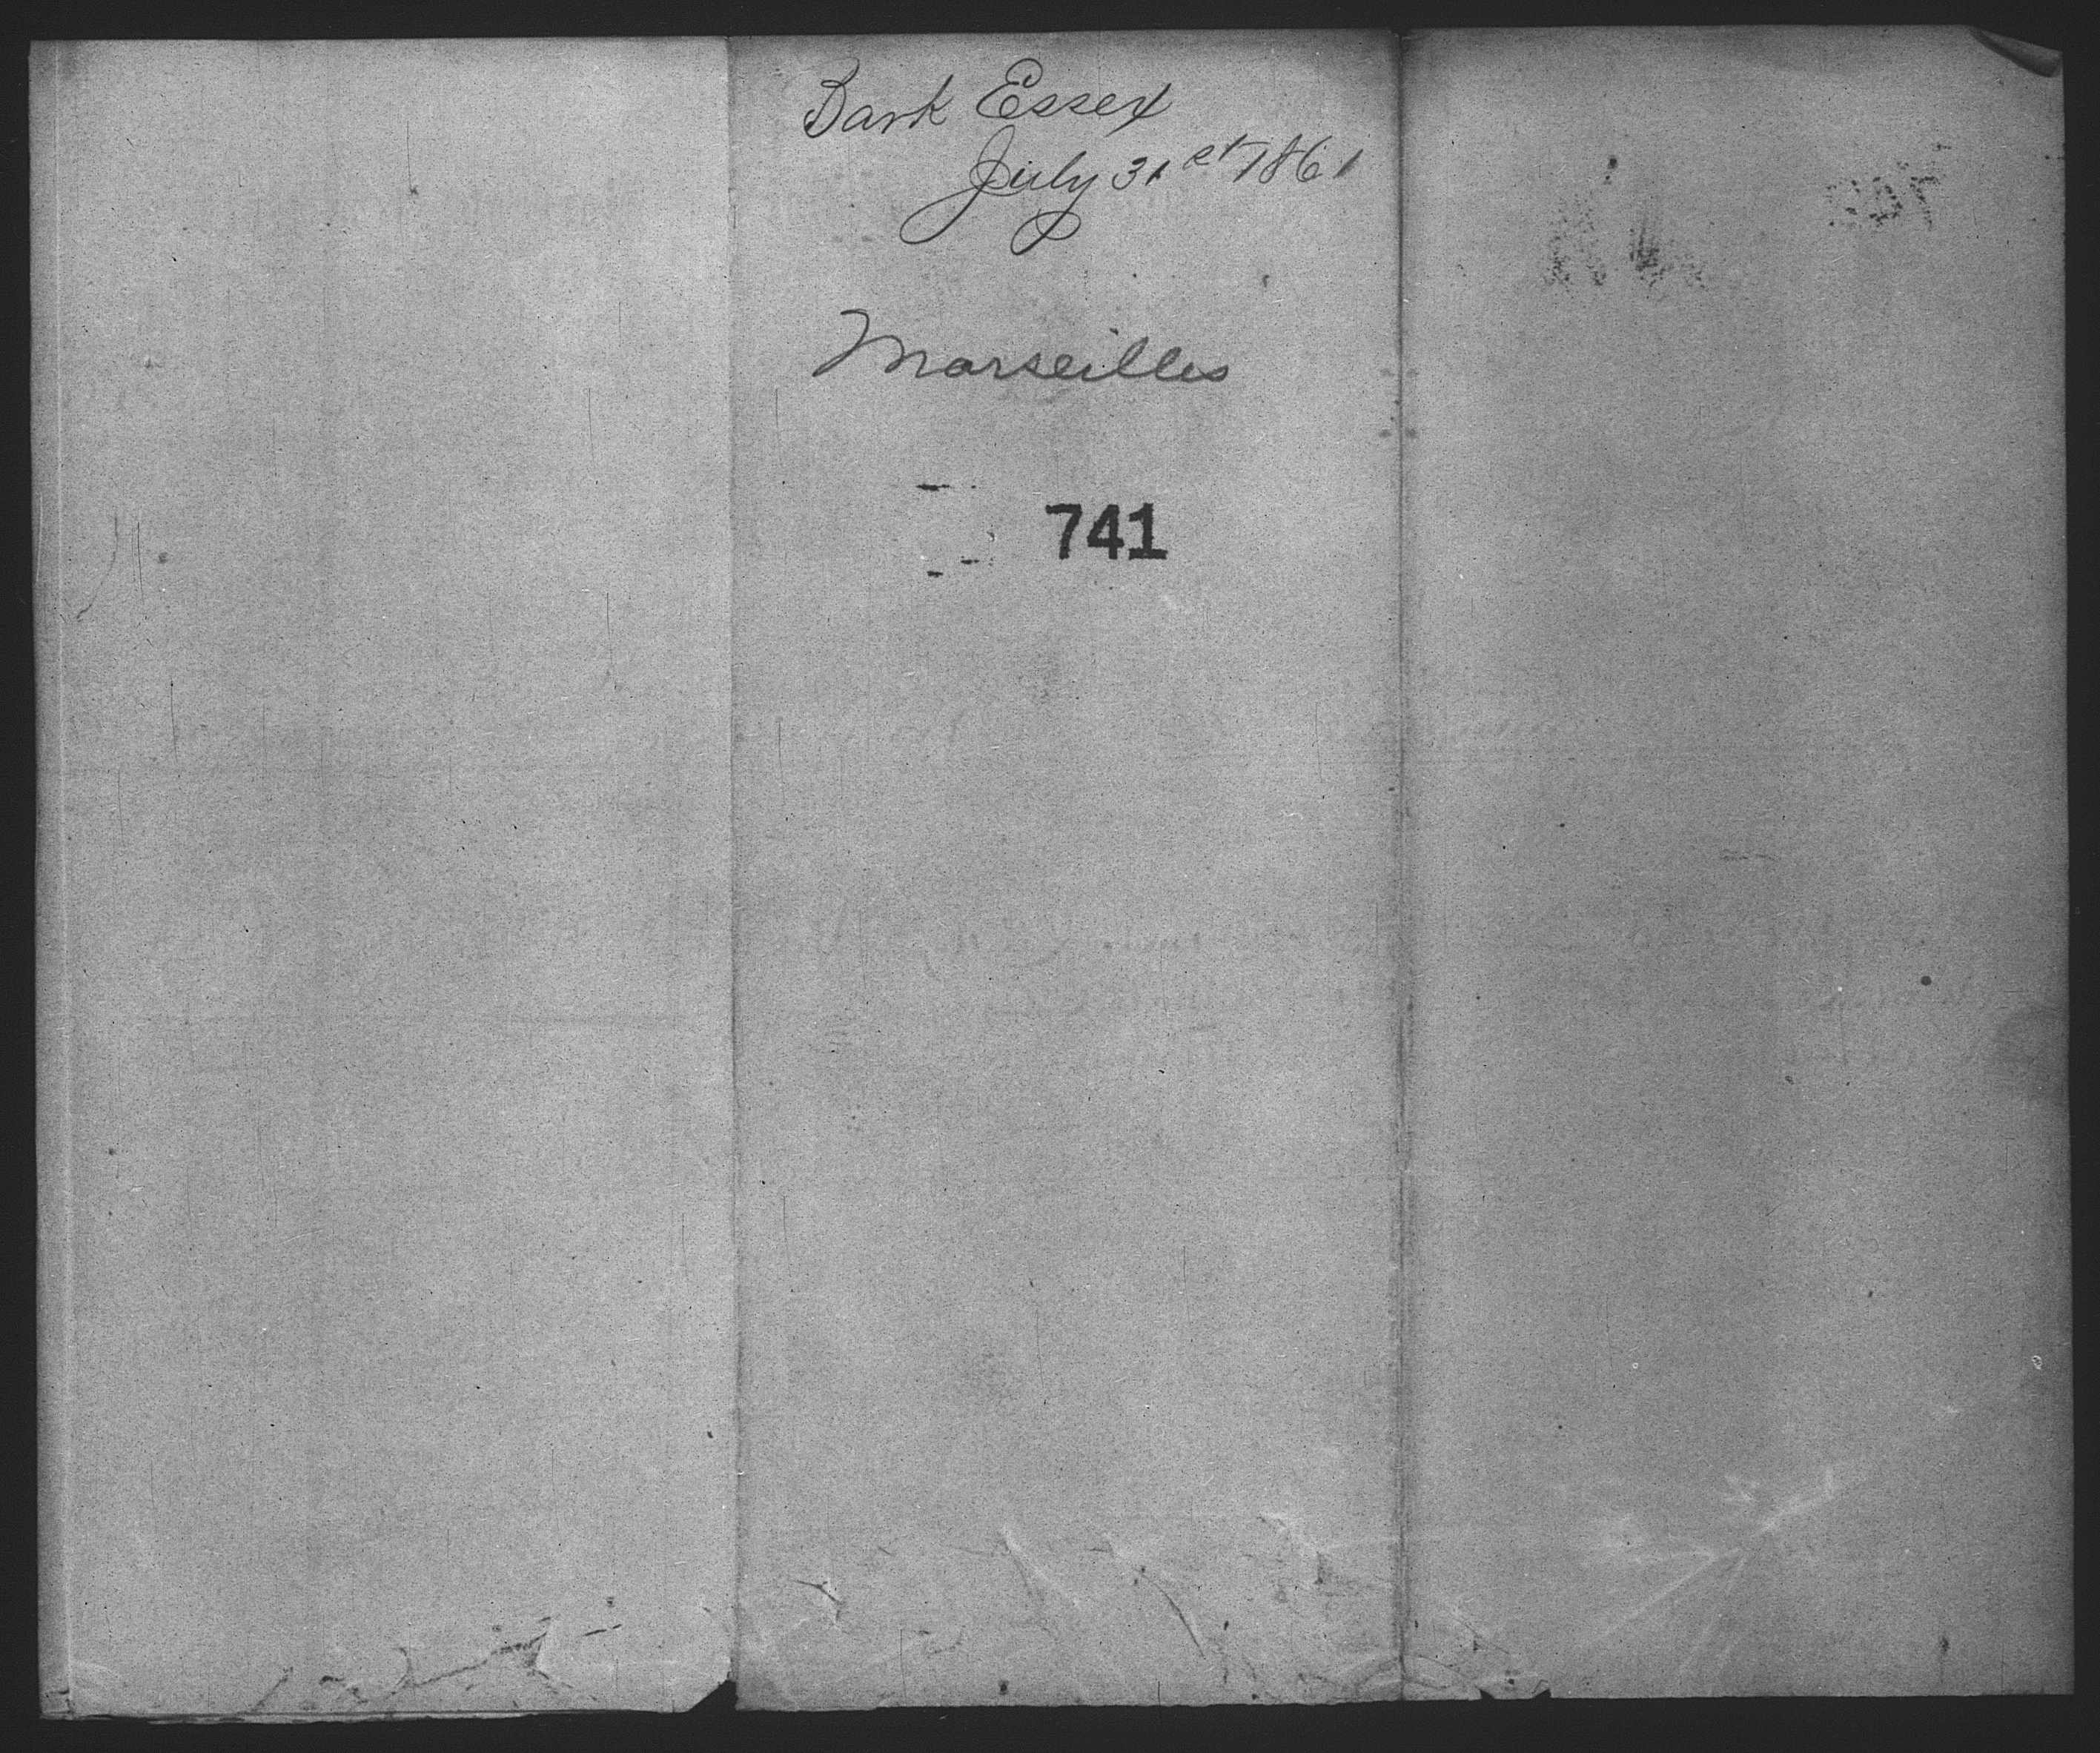 Bark Essex
July 31st 1861
Marseilles
741